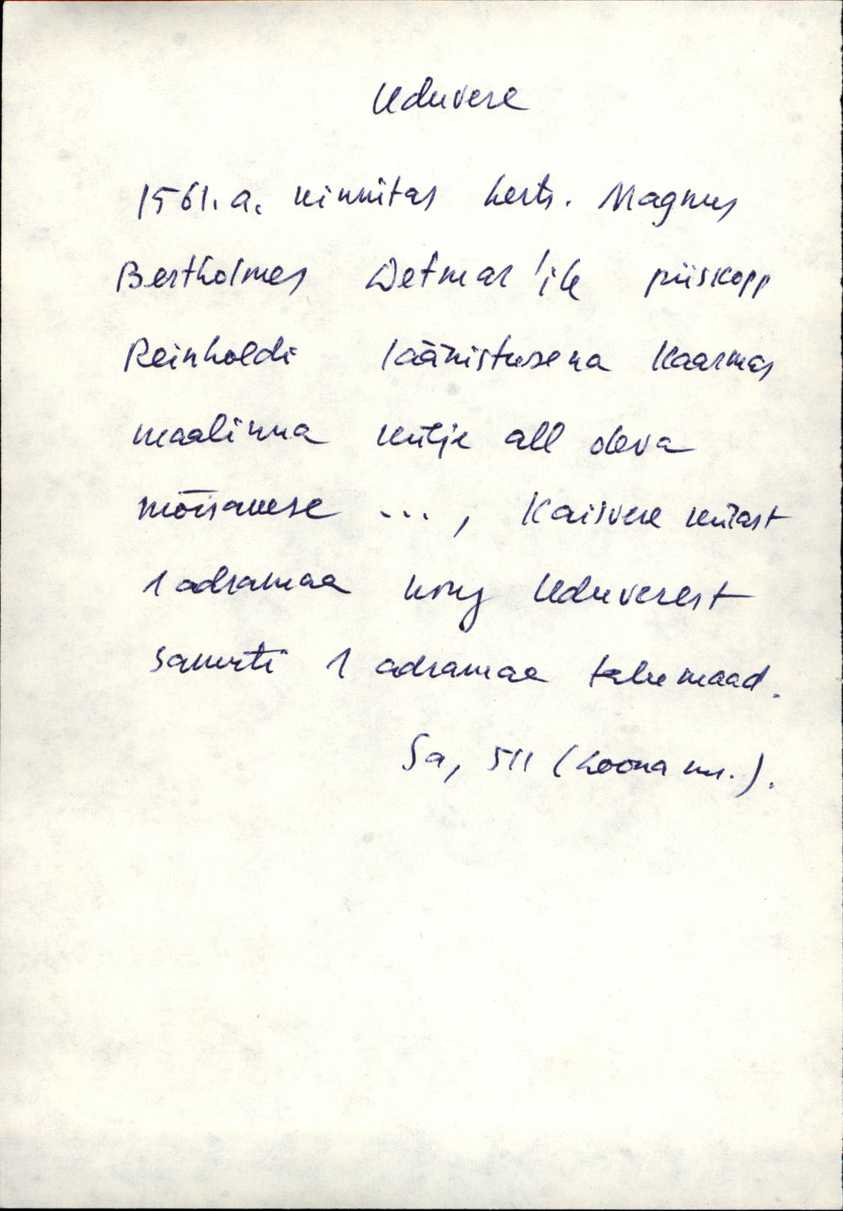 Uduvere
1561.a. kinnitas herts. Magnus
Bertholmes Detmar'ile piiskopp
Reinholdi läänistusena Kaarmas
maalinna külje all oleva
mõisakese ..., Kaisvere külast
1 adramaa ning Uduverest
samuti 1 adramaa talumaad.
Sa, 511 (Loona mr.).